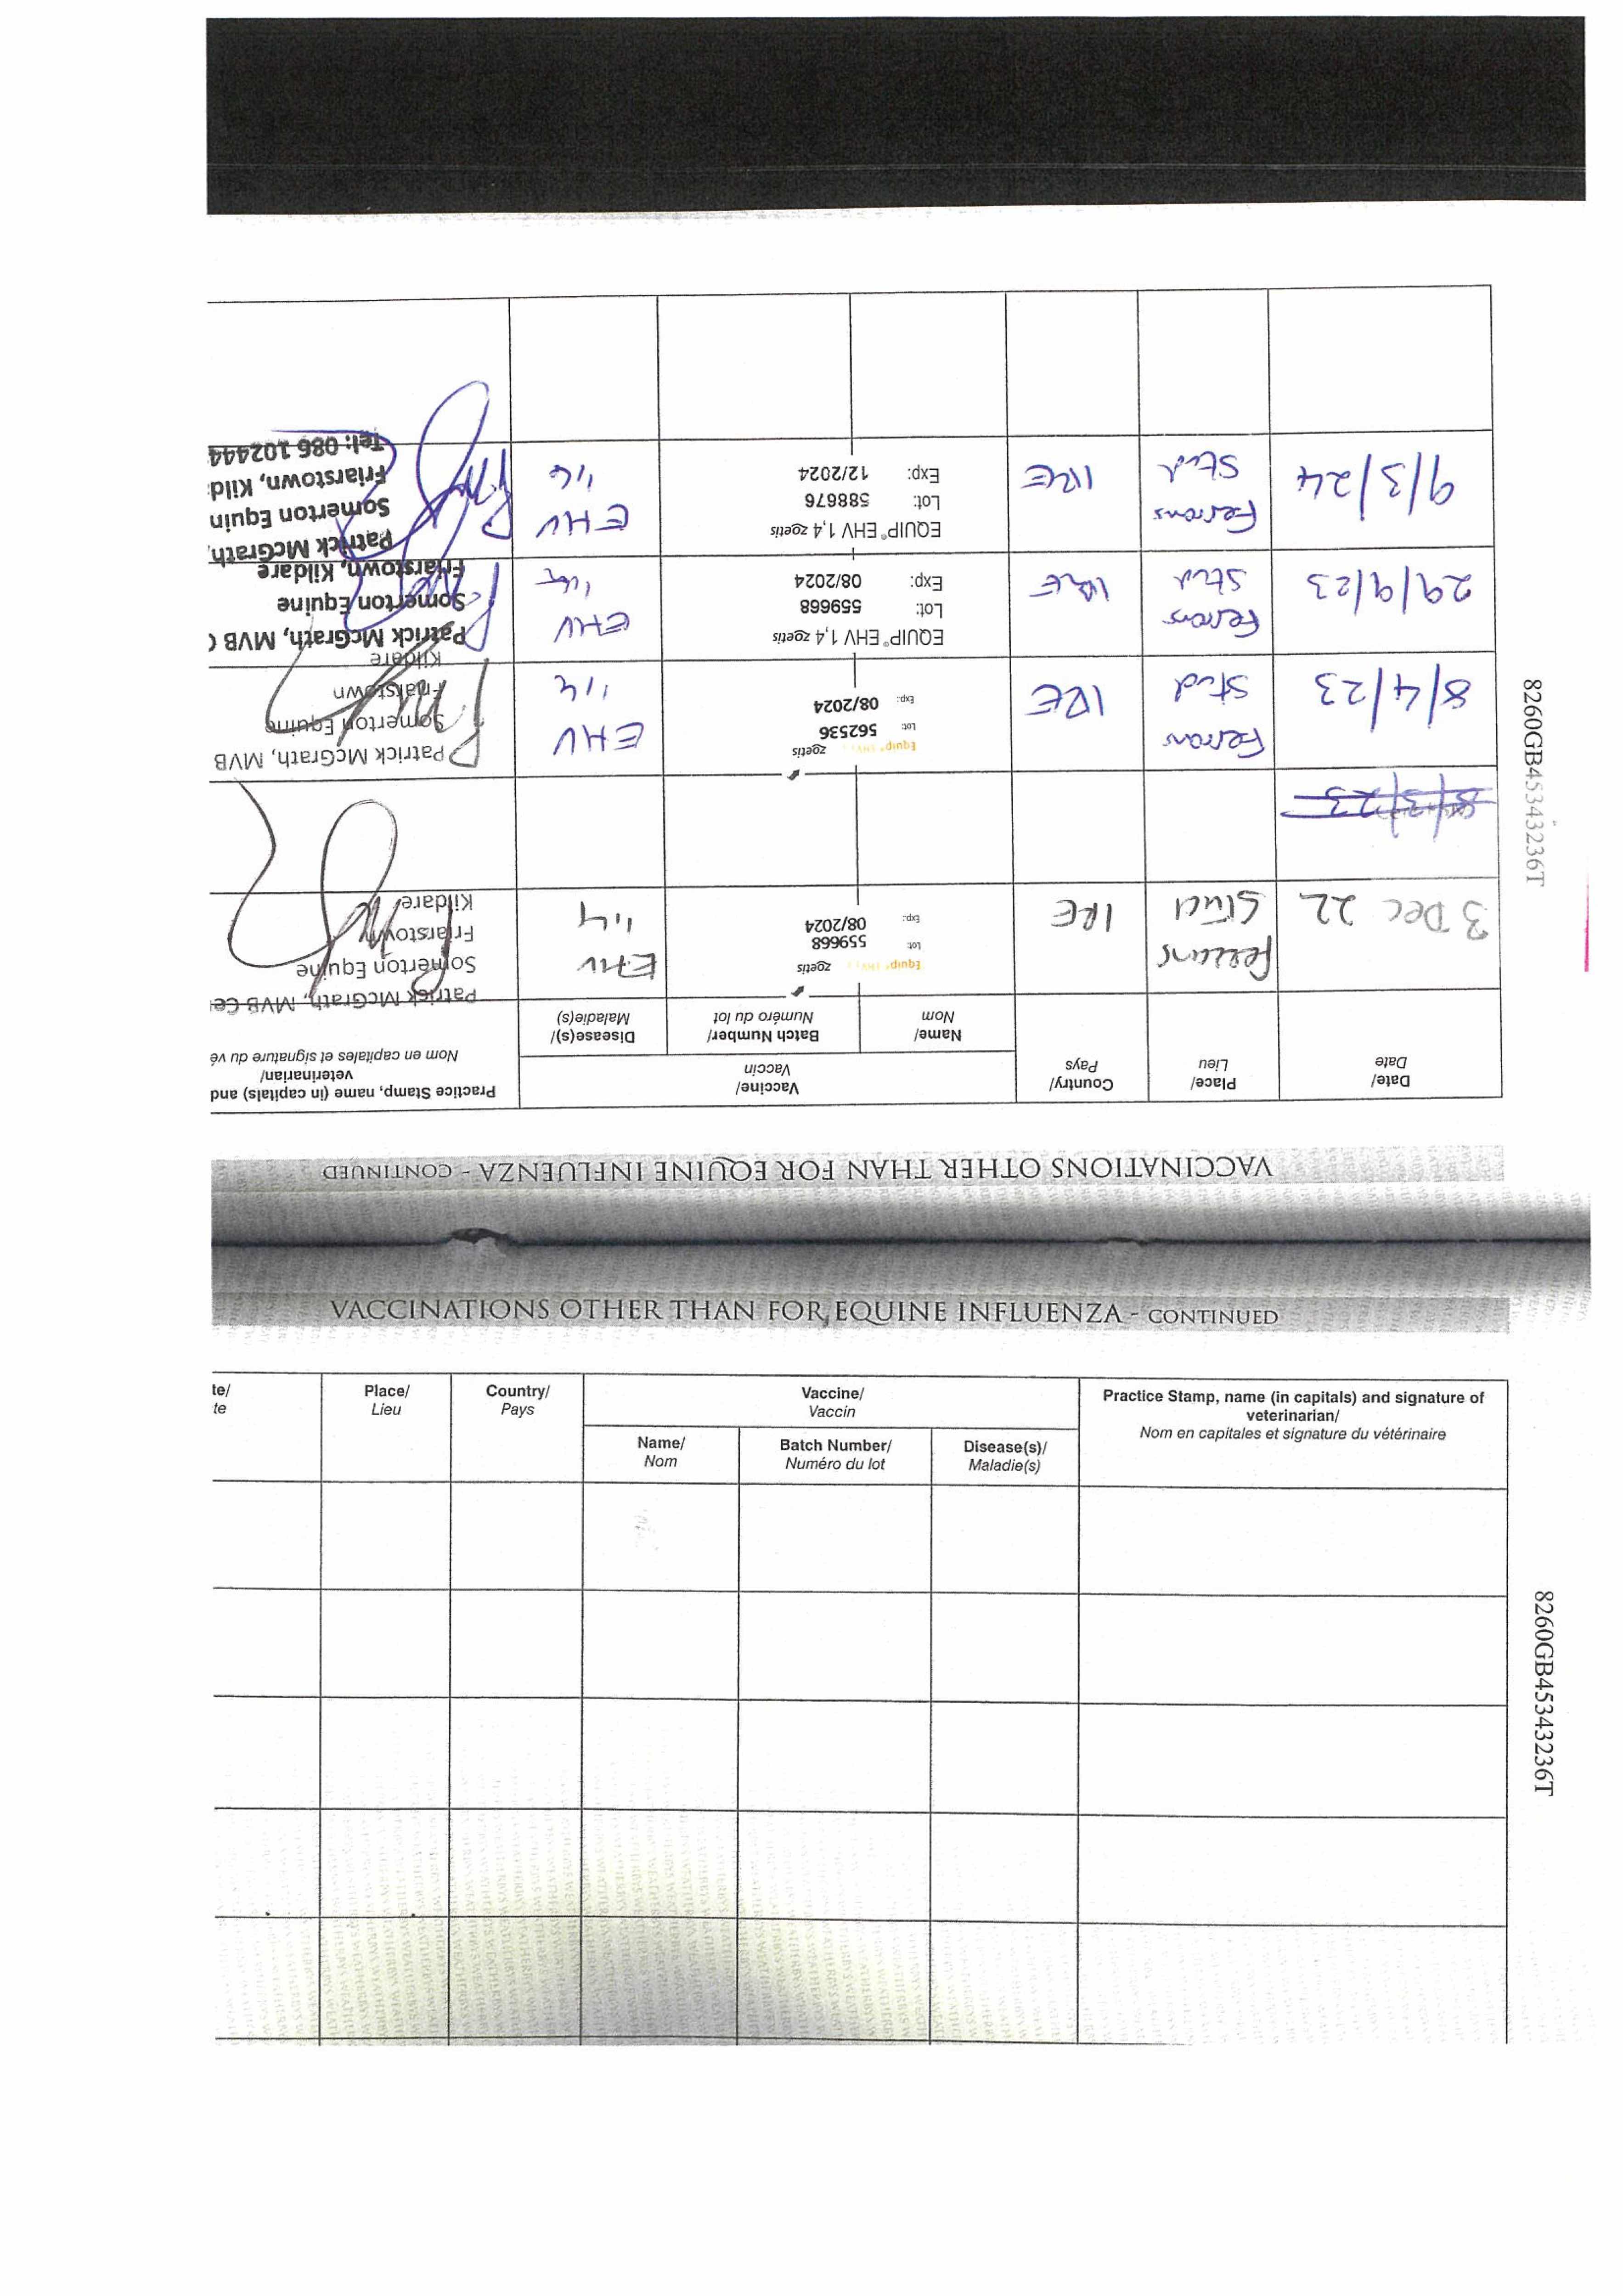 VACCINATIONS OTHER THAN FOR EQUINE INFLUENZA - CONTINUED
Date/
Date
Place/
Lieu
Country/
Pays
Vaccine/
Vaccin
Name/
Nom
Batch Number/
Numéro du lot
Disease(s)/
Maladie(s)
Practice Stamp, name (in capitals) and
veterinarian/
Nom en capitales et signature du vé
3 Dec 22
Ferrans
Stud
IRE
Equip® EHV zoetis
Lot: 559668
Exp: 08/2024
EHV
1,4
Patrick McGrath, MVB Ce
Somerton Equine
Friarstown
Kildare
8/3/23
8/4/23
Ferrans
Stud
IRE
Equip® EHV zoetis
Lot: 562536
Exp: 08/2024
EHV
1,4
Patrick McGrath, MVB
Somerton Equine
Friarstown
Kildare
29/9/23
Ferrans
Stud
IRE
EQUIP® EHV 1,4 zoetis
Lot: 559668
Exp: 08/2024
EHV
1,4
Patrick McGrath, MVB C
Somerton Equine
Friarstown, Kildare
9/3/24
Ferrans
Stud
IRE
EQUIP® EHV 1,4 zoetis
Lot: 588676
Exp: 12/2024
EHV
1,4
Patrick McGrath,
Somerton Equin
Friarstown, Kild
Tel: 086 102444
8260GB45343236T
VACCINATIONS OTHER THAN FOR EQUINE INFLUENZA - CONTINUED
te/
te
Place/
Lieu
Country/
Pays
Vaccine/
Vaccin
Name/
Nom
Batch Number/
Numéro du lot
Disease(s)/
Maladie(s)
Practice Stamp, name (in capitals) and signature of
veterinarian/
Nom en capitales et signature du vétérinaire
8260GB45343236T